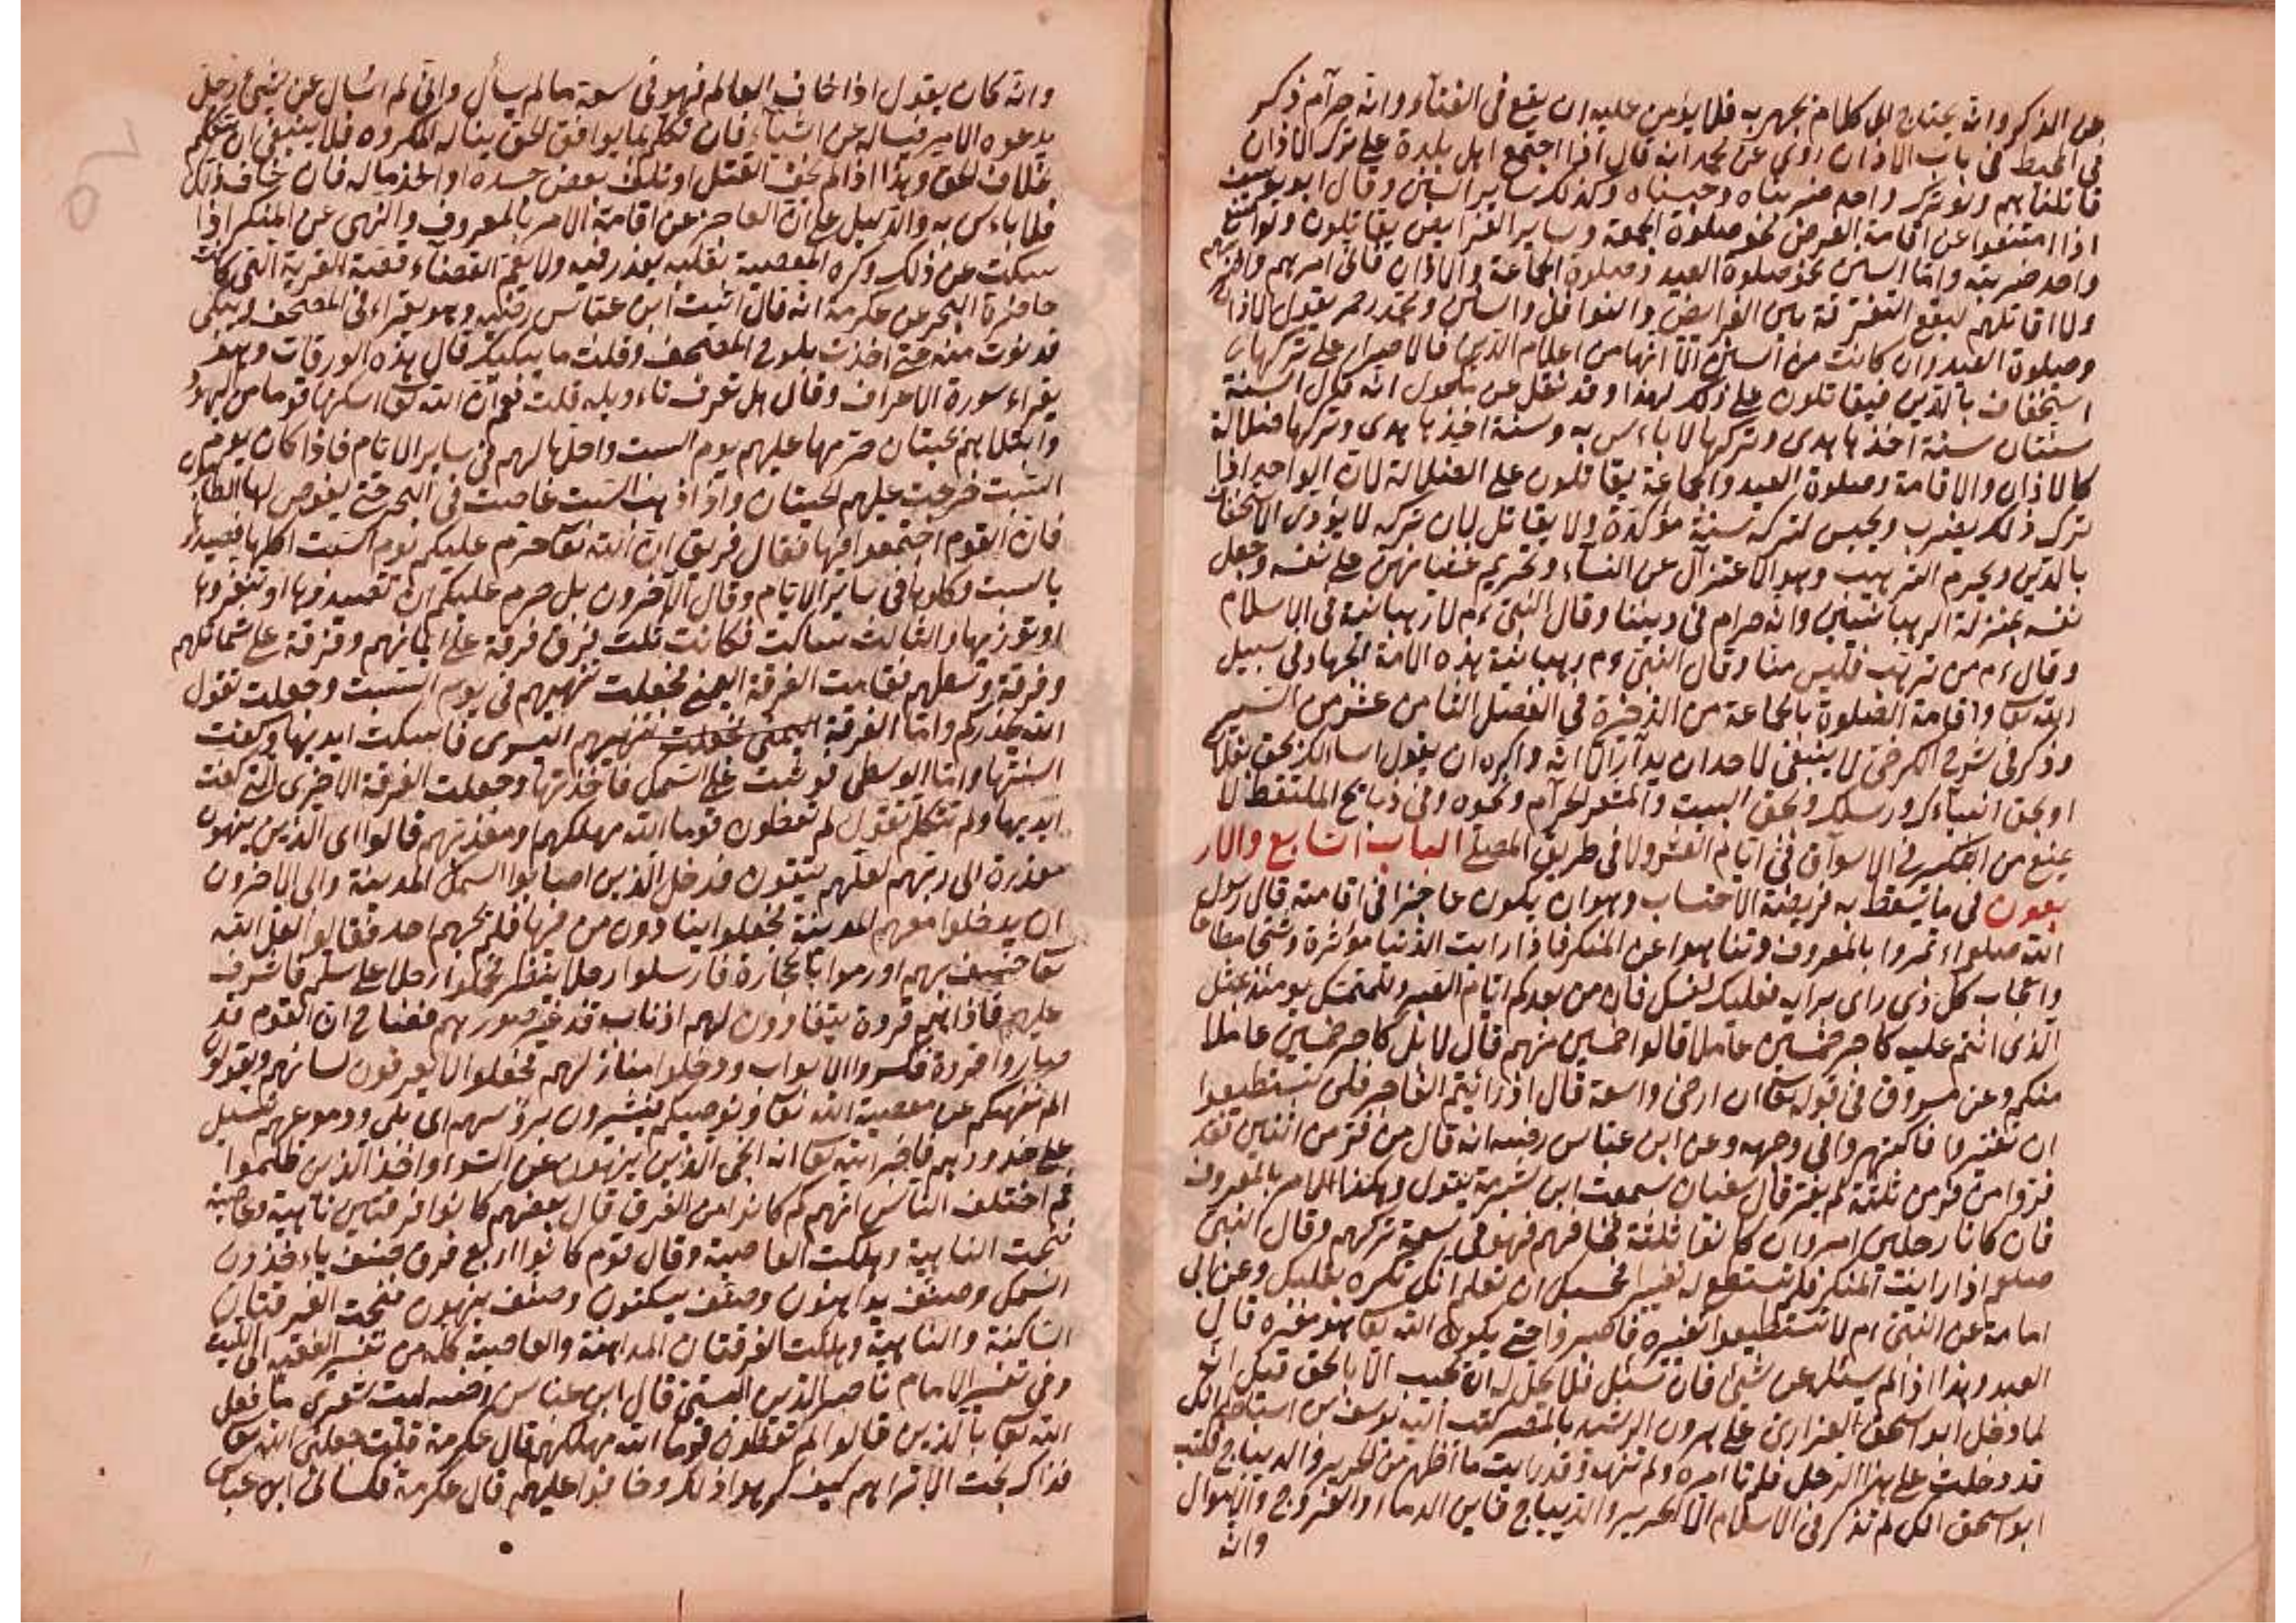 عن الذكر وانه يحتاج الى كلام يجهر به فلا يؤمن عليه ان يقع فى الغناء وانه حرآم ذكر
فى المحيط فى باب الاذان روى عن محمد انه قال اذا اجتمع اهل بلدة على ترك الاذان
قاتلناهم ولو ترك واحد ضربناه وحبسناه وكذلك ساير السنن وقال ابو يوسف
اذا امتنعوا عن اقامة الفرض نحو صلوة الجمعة وساير الفرايض يقاتلون ولو امتنع
واحد ضربته واما السنن نحو صلوة العيد وصلوة الجماعة والاذان فانى امرهم واضربهم
ولا اقاتلهم ليقع التفرقة بين الفرايض والنوافل والسنن ومحمد رحمه يقول الاذان
وصلوة العيد وان كانت من السنن الا انها من اعلام الدين فالاصرار على تركها
استخفاف بالدين فيقاتلون على ذلك لهذا وقد نقل عن مكحول انه قال السنة
سنتان سنة اخذها هدى وتركها لا باءس به وسنة اخذها هدى وتركها ضلالة
كالاذان والاقامة وصلوة العيد والجماعة يقاتلون على الضلالة لان الواحد اذا
ترك ذلك يضرب ويحبس لتركه سنة مؤكدة ولا يقاتل لان تركه لا يؤدى الاستخفاف
بالدين ويحرم الترهيب وهو الاعتزال عن النساء وتحريم غشيانهن على نفسه وجعل
نفسه بمنزلة الرهبانيين وانه حرام فى ديننا وقال النبى ءم لا رهبانية فى الاسلام
وقال ءم من ترهب فليس منا وقال النبى ءم رهبانية هذه الامة الجهاد فى سبيل
الله تعا واقامة الصلوة بالجماعة من الذخيرة فى الفصل الثامن عشر من السير
وذكر فى شرح الكرخى لا ينبغى لاحد ان يدعو الا الله واكره ان يقول اسالك بحق فلان
او بحق انبياءك ورسلك وبحق البيت والمشعر الحرآم ونحوه وفى ذبايح الملتقط لا
يمنع من التكبير فى الاسوآق فى ايام العشر ولا فى طريق المصلى الباب السابع والار
بعون فى ما يسقط به فريضة الاحتساب وهو ان يكون عاجزا فى اقامته قال رسول
الله صلعم اءتمروا بالمعروف وتناهوا عن المنكر فاذا رايت الدنيا مؤثرة وشحا مطاعا
واعجاب كل ذى راى برايه فعليك نفسك فان من بعدكم ايام الصبر وللمتمسك يومئذ بمثل
الذى انتم عليه كاجر خمسين عاملا قالوا خمسين منهم قال لا بل كاجر خمسين عاملا
منكم وعن مسروق فى قوله تعا ان ارضى واسعة قال اذ رايتم الفاجر فلم تستطيعوا
ان تغيروا فاكفهروا فى وجهه وعن ابن عباس رضهـ انه قال من فر من اثنين فقد
فر ومن فر من ثلثة لم يفر قال سفيان سمعت ابن شبرمة يقول وهكذا الامر بالمعروف
فان كانا رجلين امر وان كانوا ثلثة فخافهم فهو فى سعة تركهم وقال النبى
صلعم اذا رايت المنكر فلم تستطع له تغييرا فحسبك ان تعلم انك تكره بقلبك وعن ابى
امامة عن النبى ءم لا تستطيعوا تغييره فاصبروا حتى يكون الله تعا هو مغيره قال
العبد وهذا اذا لم يسئل عن شئ فان سئل فلا يحل له ان يجيب الا بالحق قيل انه
لما دخل ابو اسحق الفزارى على هرون الرشيد بالمصر كتب اليه يوسف بن اسباط انك
قد دخلت على هذا الرجل فلم تاءمره ولم تنهه وقد رايت ما اظهر من الحرير والديباج فكتب
ابو اسحق انك لم تذكر فى الاسلام الا الحرير والديباج فاين الدماء والفروج والاموال
وانه
وانه كان يقول اذا خاف العالم فهو فى سعة ما لم يسأل وانى لم اسأل عن شئ رجل
يدعوه الامير فيساله عن اشياء فان تكلم بما يوافق الحق يناله المكروه فلا ينبغى ان يتكلم
بخلاف الحق وهذا اذا لم يخف القتل او تلف بعض جسده او اخذ ماله فان خاف ذلك
فلا باءس به والدليل على ان العاجز عن اقامة الامر بالمعروف والنهى عن المنكر اذا
سكت عن ذلك وكره المعصية بقلبه يعذر فيه ولا يعم القضاء قصة القرية التى كانت
حاضرة البحر عن عكرمة انه قال اتيت ابن عباس رضهـ وهو يقراء فى المصحف ويبكى
قد نوت منه حتى اخذت بلوحى المصحف وقلت ما يبكيك قال هذه الورقات وهو
يقراء سورة الاعراف وقال هل تعرف تاءويله قلت نعم ان الله تعا اسكنها قوما من اليهود
وابتلاهم بحيتان حرمها عليهم يوم السبت واحلها لهم فى ساير الايام فاذا كان يوم
السبت خرجت عليهم الحيتان واذا ذهب السبت غاصت فى البحر حتى يغوص لها الطالبون
فان القوم اجتمعوا فيها فقال فريق ان الله تعا حرم عليكم يوم السبت اكلها فصيدوا
بالسبت وكلوها فى ساير الايام وقال الآخرون بل حرم عليكم ان تصيدوها او تنفروها
او تؤذيها والثالث ساكت فكانت ثلث فرق فرقة على ايمانهم وفرقة على شمائلهم
وفرقة وسطهم فقامت الفرقة اليمنى فجعلت تنهيهم فى يوم السبت وجعلت تقول
الله يحذركم واما الفرقة اليمنى فجعلت تنهيهم اليسرى فامسكت ايديها وكفت
السنتها واما الوسطى فوثبت على السمك فاخذتها وجعلت الفرقة الاخرى التى كفت
ايديها ولم تتكلم تقول لم تعظون قوما الله مهلكهم او معذبهم قالوا اى الذين ينهون
معذرة الى ربهم لعلهم يتقون فدخل الذين اصابوا السمك المدينة وابى الاخرون
ان يدخلوا معهم المدينة فجعلوا ينادون من فيها فلم يجبهم احد فقالوا لعل الله
تعا خسف بهم او رموا بالحجارة فارسلوا رجلا ينظر فحملوا رجلا على سلم فاشرف
عليهم فاذا هم قردة يتعاوون لهم اذناب قد غير صورهم فصاح ان القوم قد
صاروا قردة فكسروا الابواب ودخلوا منازلهم فجعلوا لا يعرفون لسانهم ويقولون
الم ننهكم عن معصية الله تعا ونوصيكم فيشيرون برؤسهم اى بلى ودموعهم تسيل
على خدودهم فاخبر الله تعا انه انجى الذين ينهون عن السوء واخذ الذين ظلموا
ثم اختلف الناس انهم كم كانوا من الفرق قال بعضهم كانوا فرقتين ناهية وعاصية
فنجت الناهية وهلكت العاصية وقال قوم كانوا اربع فرق صنف ياءخذون
السمك وصنف يداهنون وصنف يسكتون وصنف ينهون فنجت الفرقتان
الساكنة والناهية وهلكت الفرقتان المداهنة والعاصية كله من تفسير الفقيه ابى الليث
وفى تفسير الامام ناصر الدين البستى قال ابن عباس رضهـ ليت شعرى ما فعل
الله تعا بالذين قالوا لم تعظون قوما الله مهلكهم قال عكرمة قلت جعلنى الله تعا
فداك نجت الا تراهم كيف كرهوا ذلك وخافوا عليهم قال عكرمة فكسانى ابن عباس